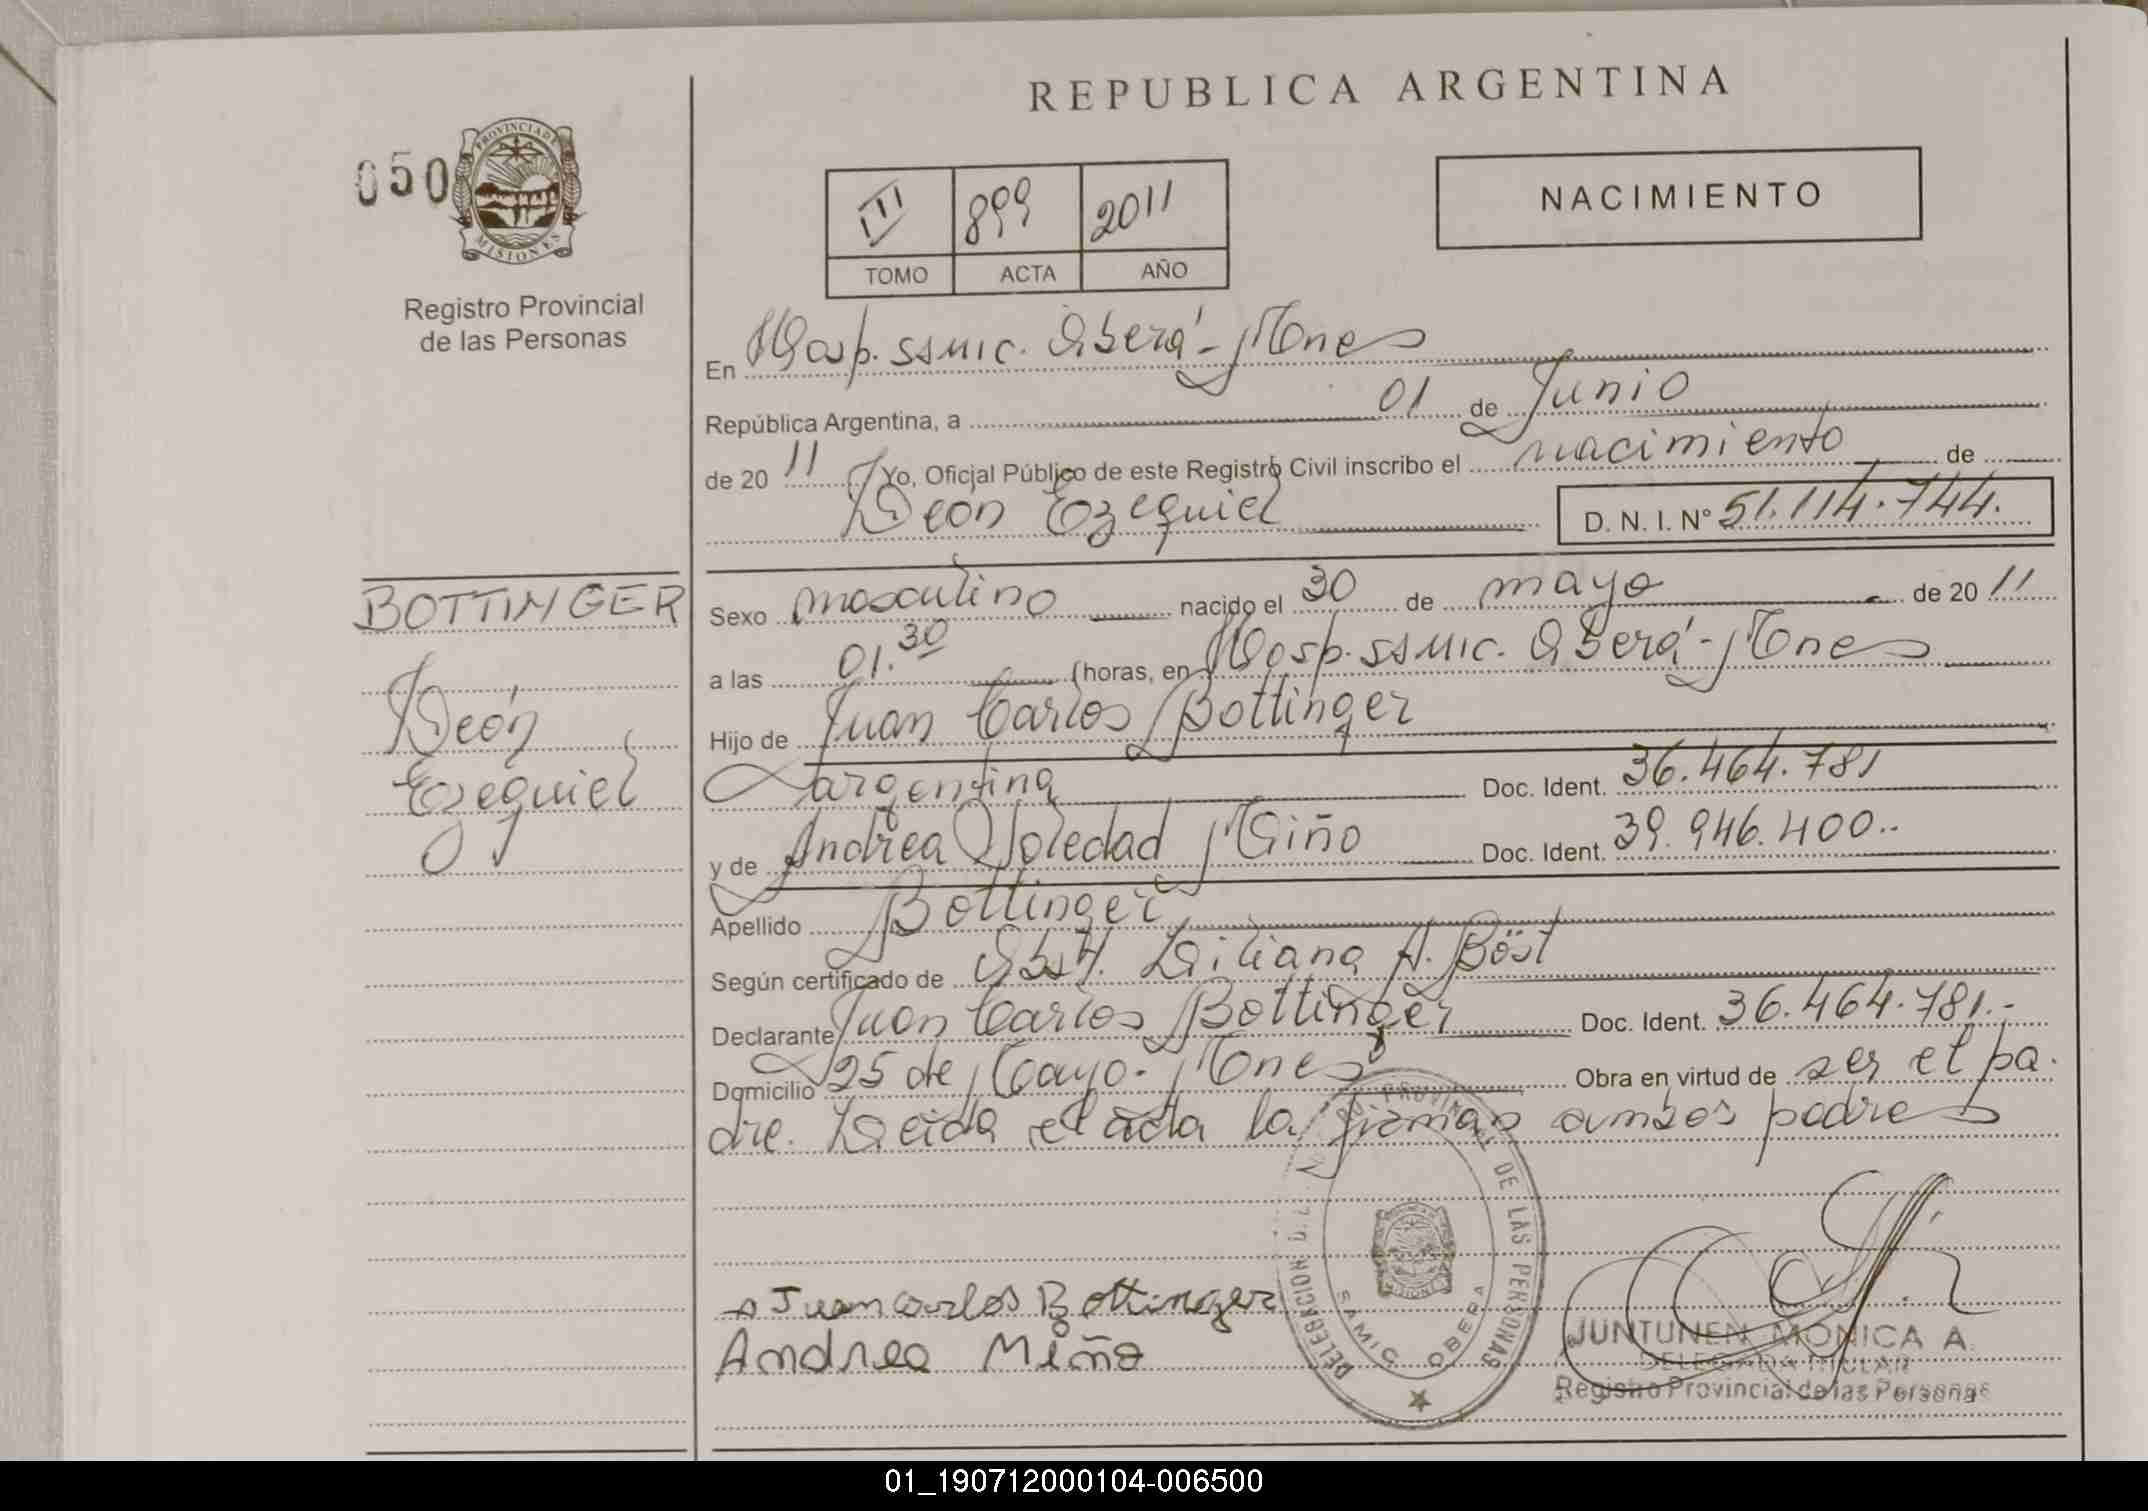 REPUBLICA ARGENTINA
050
PROVINCIA DE
MISIONES
Registro Provincial
de las Personas
III 899 2011
TOMO ACTA AÑO
NACIMIENTO
En Hosp. SSMIC. Oberá - Mnes
República Argentina, a 01 de Junio
de 20 11 Yo, Oficial Público de este Registro Civil inscribo el nacimiento de
León Ezequiel D. N. I. Nº 51.114.744.
BOTTINGER
León
Ezequiel
Sexo masculino nacido el 30 de mayo de 20 11
a las 01.30 horas, en Hosp. SSMIC. Oberá - Mnes
Hijo de Juan Carlos Bottinger
argentina Doc. Ident. 36.464.781
y de Andrea Soledad Miño Doc. Ident. 39.946.400..
Apellido Bottinger
Según certificado de Obst. Liliana A. Böst
Declarante Juan Carlos Bottinger Doc. Ident. 36.464.781.-
Domicilio 25 de Mayo - Mnes Obra en virtud de ser el pa.
dre. Leida el acta la firman ambos padres
Juan Carlos Bottinger
Andrea Miño
DELEGACION PROVINCIAL DE LAS PERSONAS
SAMIC OBERA
JUNTUNEN MONICA A.
DELEGADA TITULAR
Registro Provincial de las Personas
01_190712000104-006500